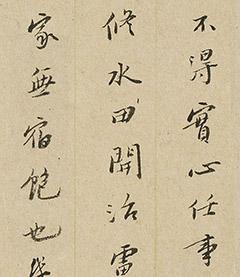 不得實心任事
修水田開沽雷
家無宿飽也